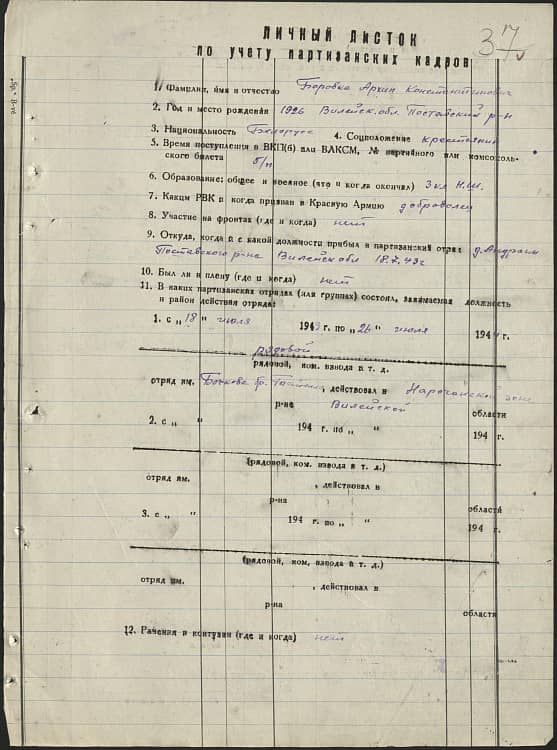 37
ЛИЧНЫЙ ЛИСТОК
по учету партизанских кадров
1. Фамилия, имя и отчество Боровка Архип Константинович
2. Год и место рождения 1926 Вилейск. обл. Поставский р-н
3. Национальность Белорус 4. Соцположение крестьянин
5. Время поступления в ВКП(б) или ВЛКСМ, № партийного или комсомоль-
ского билета б/п
6. Образование: общее и военное (что и когда окончил) 3 кл Н.Ш.
7. Каким РВК и когда призван в Красную Армию доброволец
8. Участие на фронтах (где и когда) нет
9. Откуда, когда и с какой должности прибыл в партизанский отряд д.
Поставского р-на Вилейск обл 18.7.43г
10. Был ли в плену (где и когда) нет
11. В каких партизанских отрядах (или группах) состоял, занимаемая должность
и район действия отряда:
1. с „18" июля 1943 г. по „26" июля 1944 г.
рядовой
(рядовой, ком. взвода и т. д.
отряд им. бр. , действовал в Нарочанской зоне
р-не Вилейской области
2. с „ " 194 г. по „ " 194 г.
(рядовой, ком. взвода и т. д.)
отряд им. , действовал в
р-на области
3. с „ " 194 г. по „ " 194 г.
(рядовой, ком. взвода и т. д.)
отряд им. , действовал в
р-на
области
12. Ранения и контузии (где и когда) нет